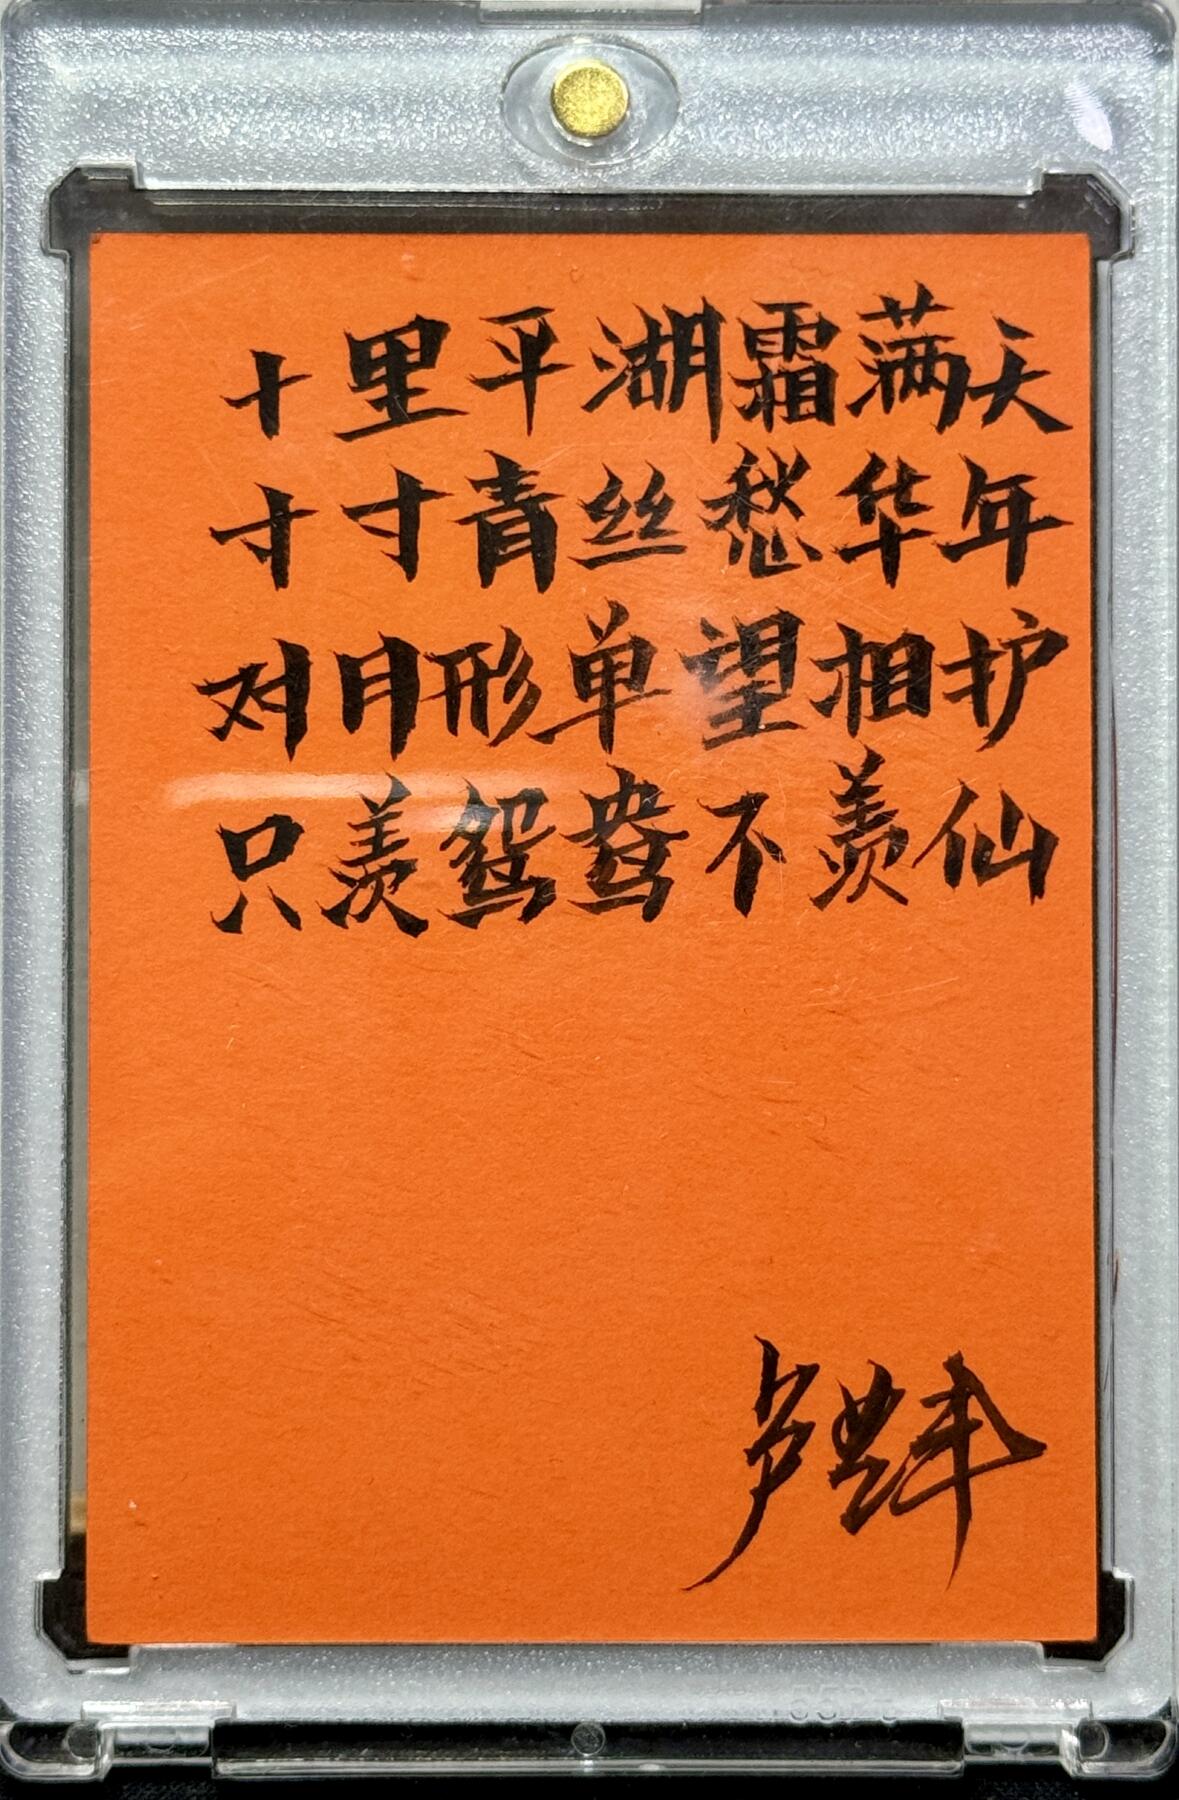 十里平湖霜满天
寸寸青丝愁华年
对月形单望相护
只羡鸳鸯不羡仙